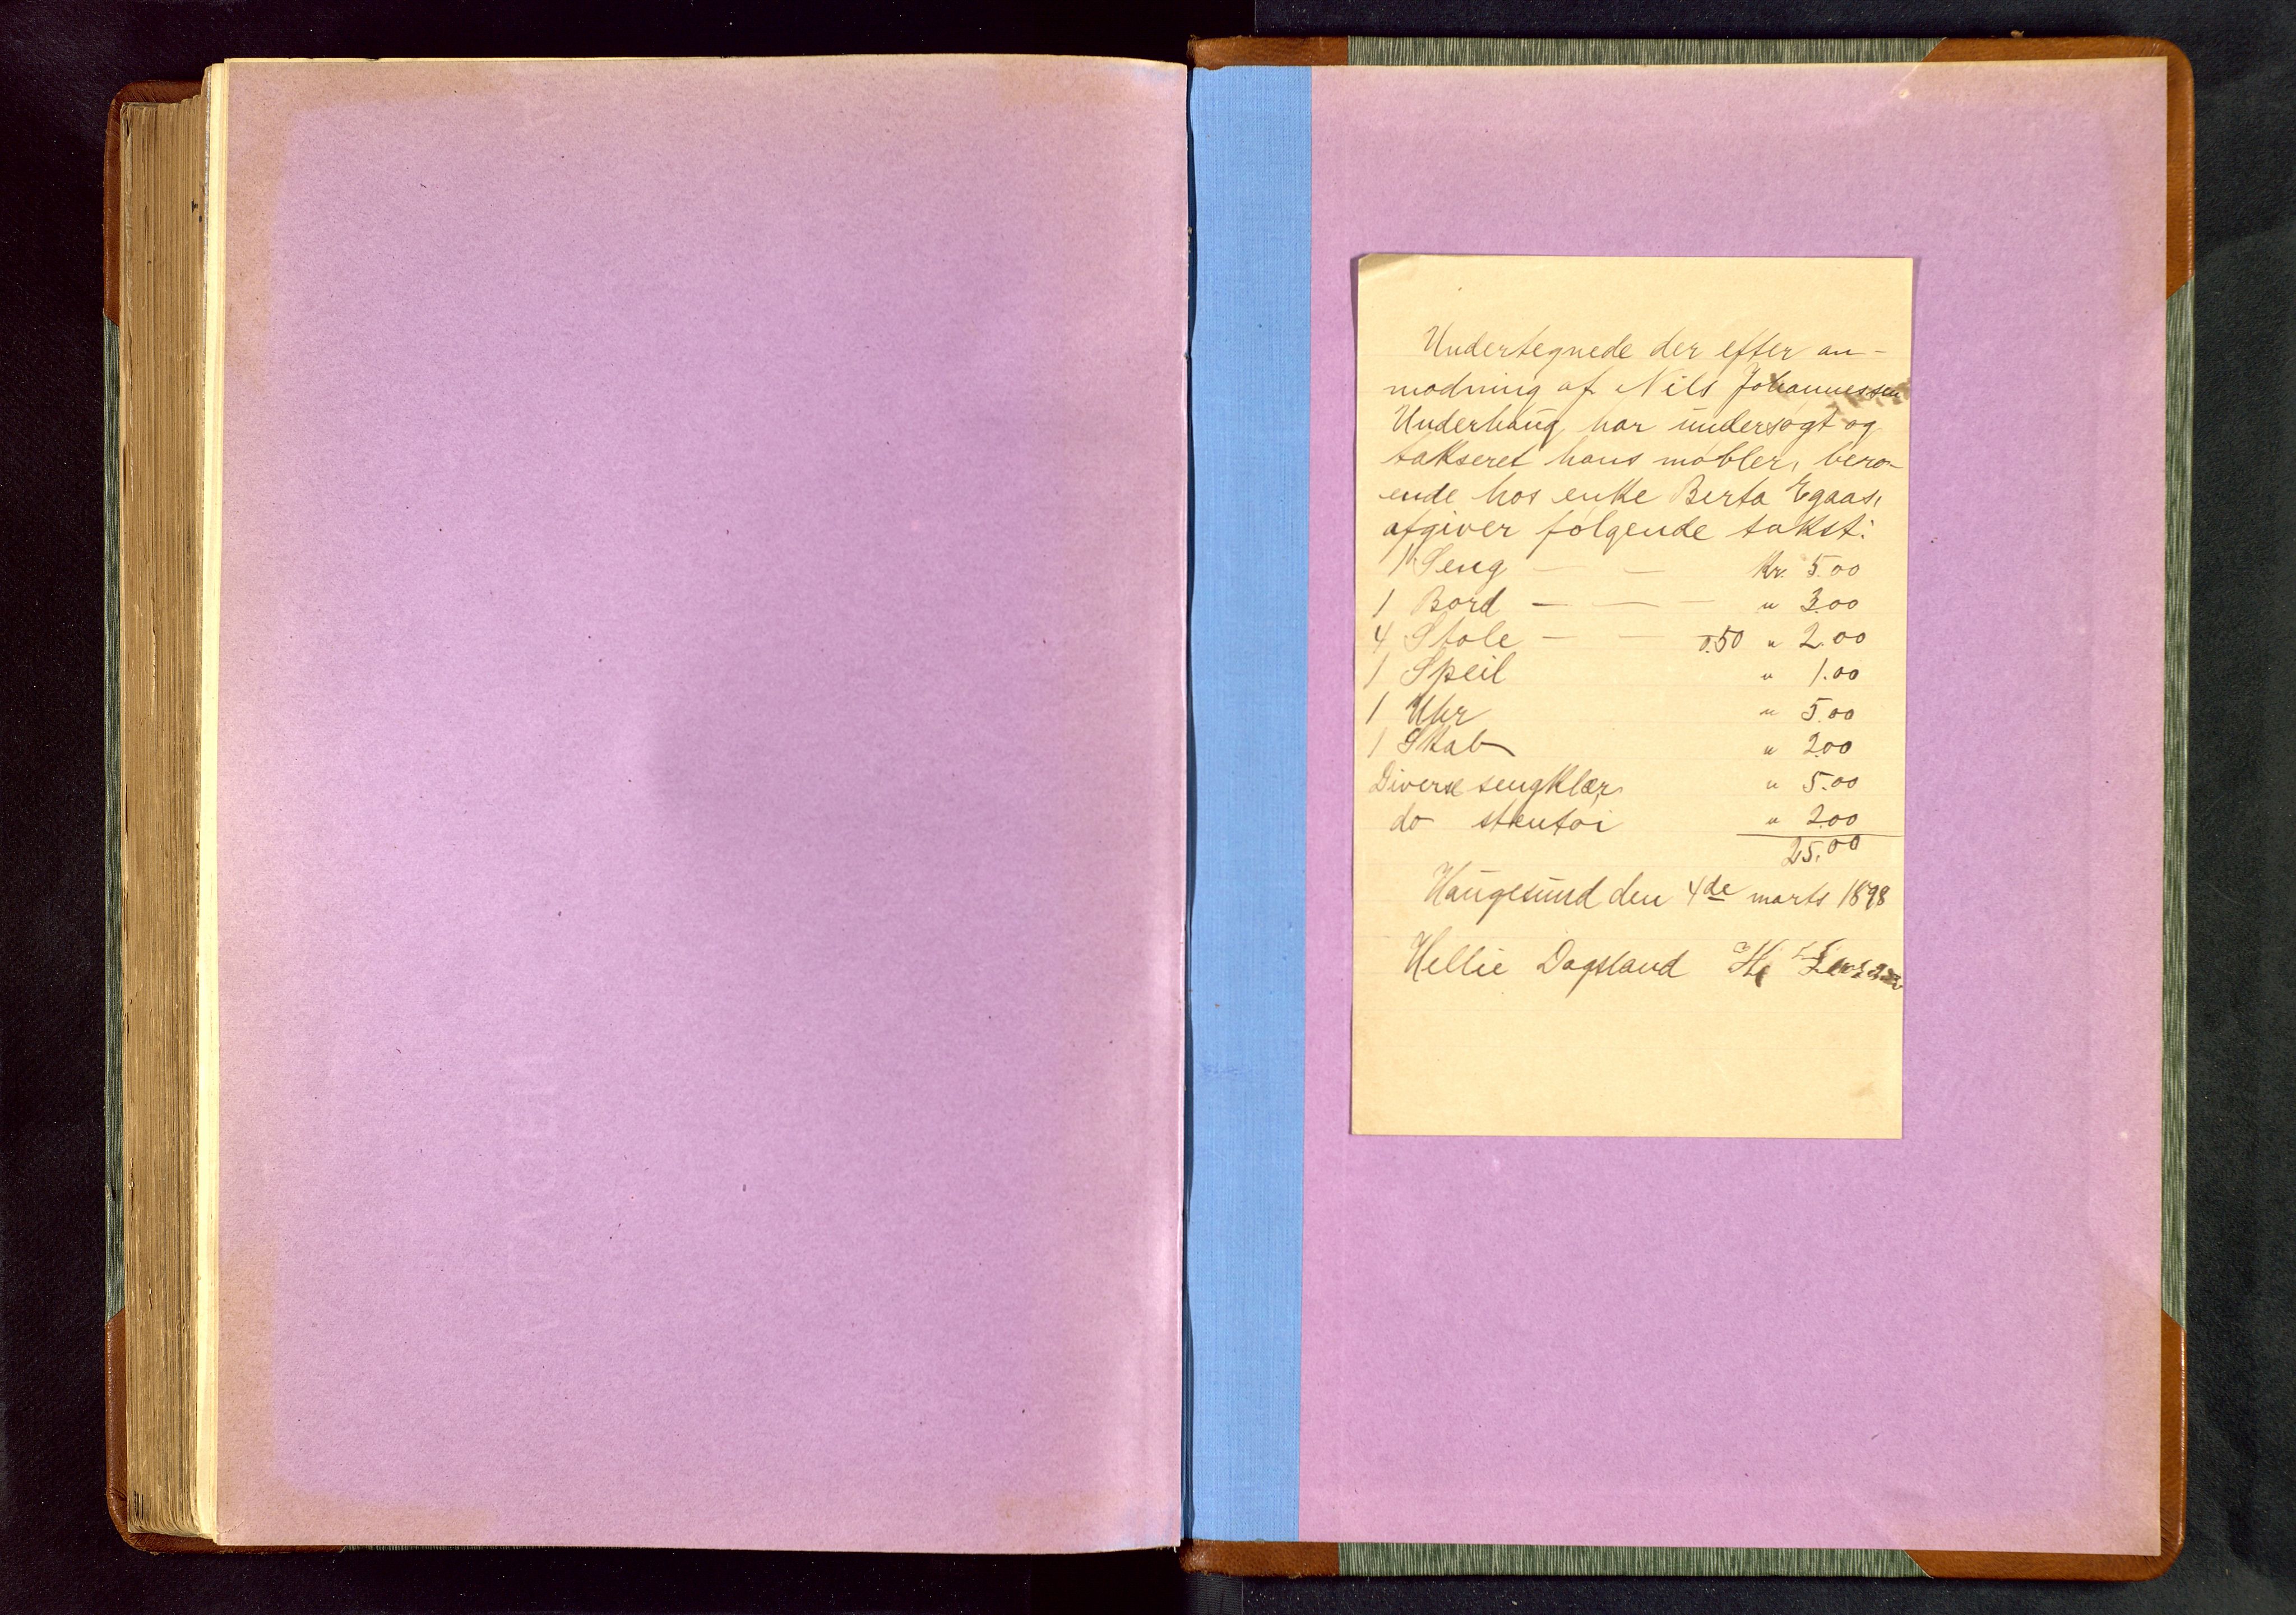 Undertegnede der efter an-
modning af Nils Johannessen
Underhaug har undersøgt og
takseret hans møbler, bero-
ende hos enke Berta Egaas,
afgiver følgende takst:
1 Seng — — Kr. 5.00
1 Bord — — — " 3.00
4 Stole — — 0.50 " 2.00
1 Speil " 1.00
1 Uhr " 5.00
1 Skab " 2.00
Diverse sengklær " 5.00
do stentøi " 2.00
25.00
Haugesund den 4de marts 1898
Hellie Dagsland H.